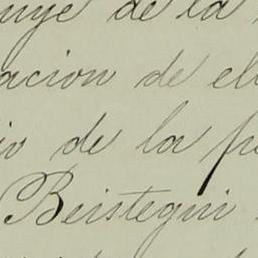 uye de la
acion de el
io de la p
Beistegui